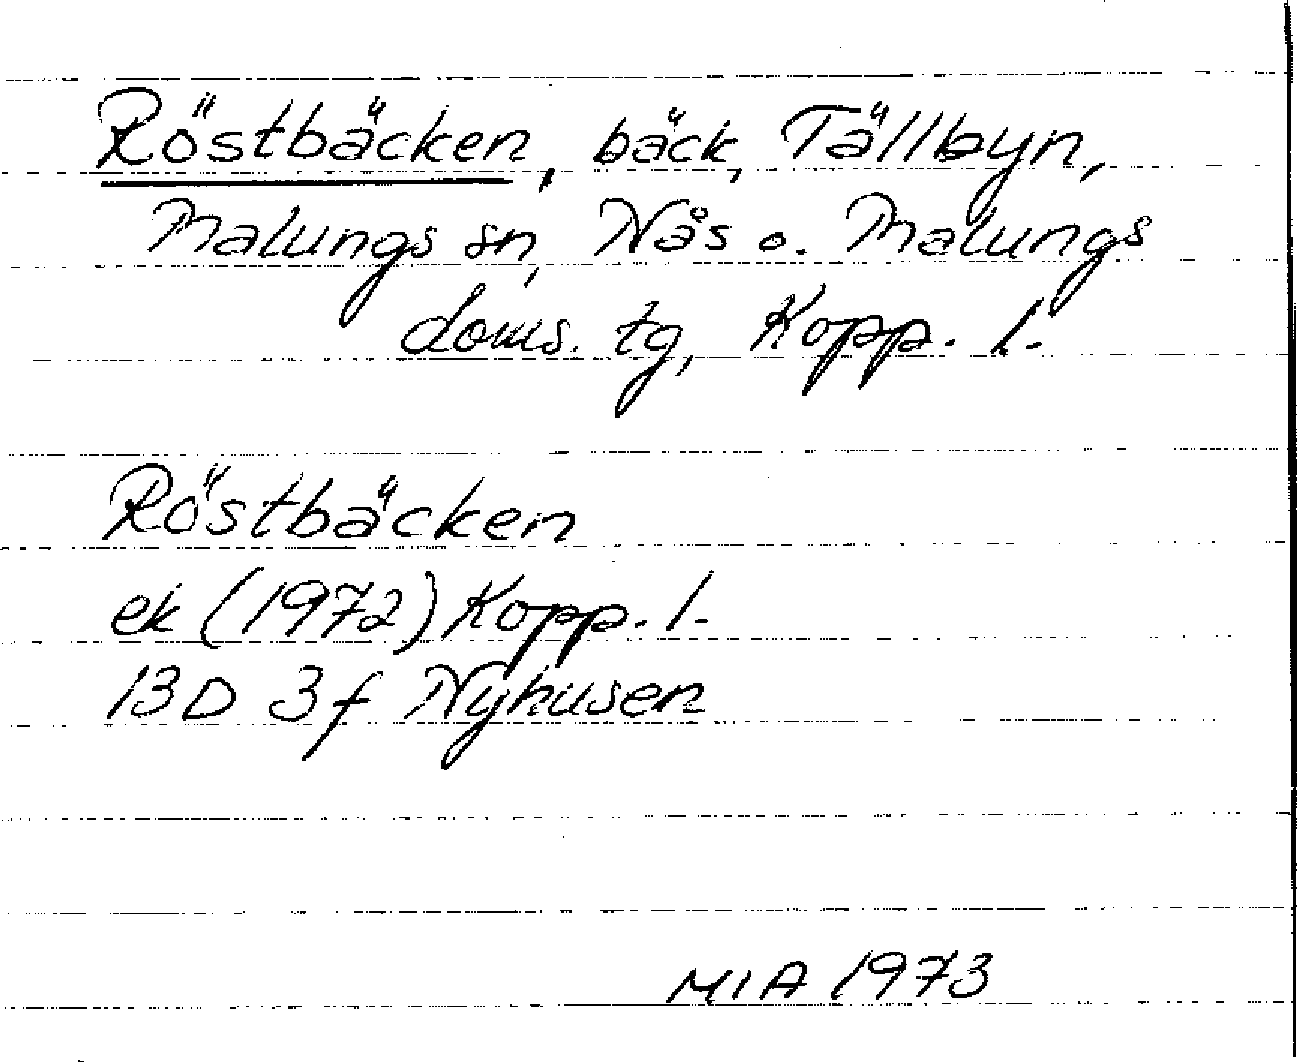 Röstbäcken, bäck, Tällbyn,
Malungs sn, Nås o. Malungs
doms. tg, Kopp. l.
Röstbäcken
ek (1972) Kopp. l.
13D 3f Nyhusen
MIA 1973